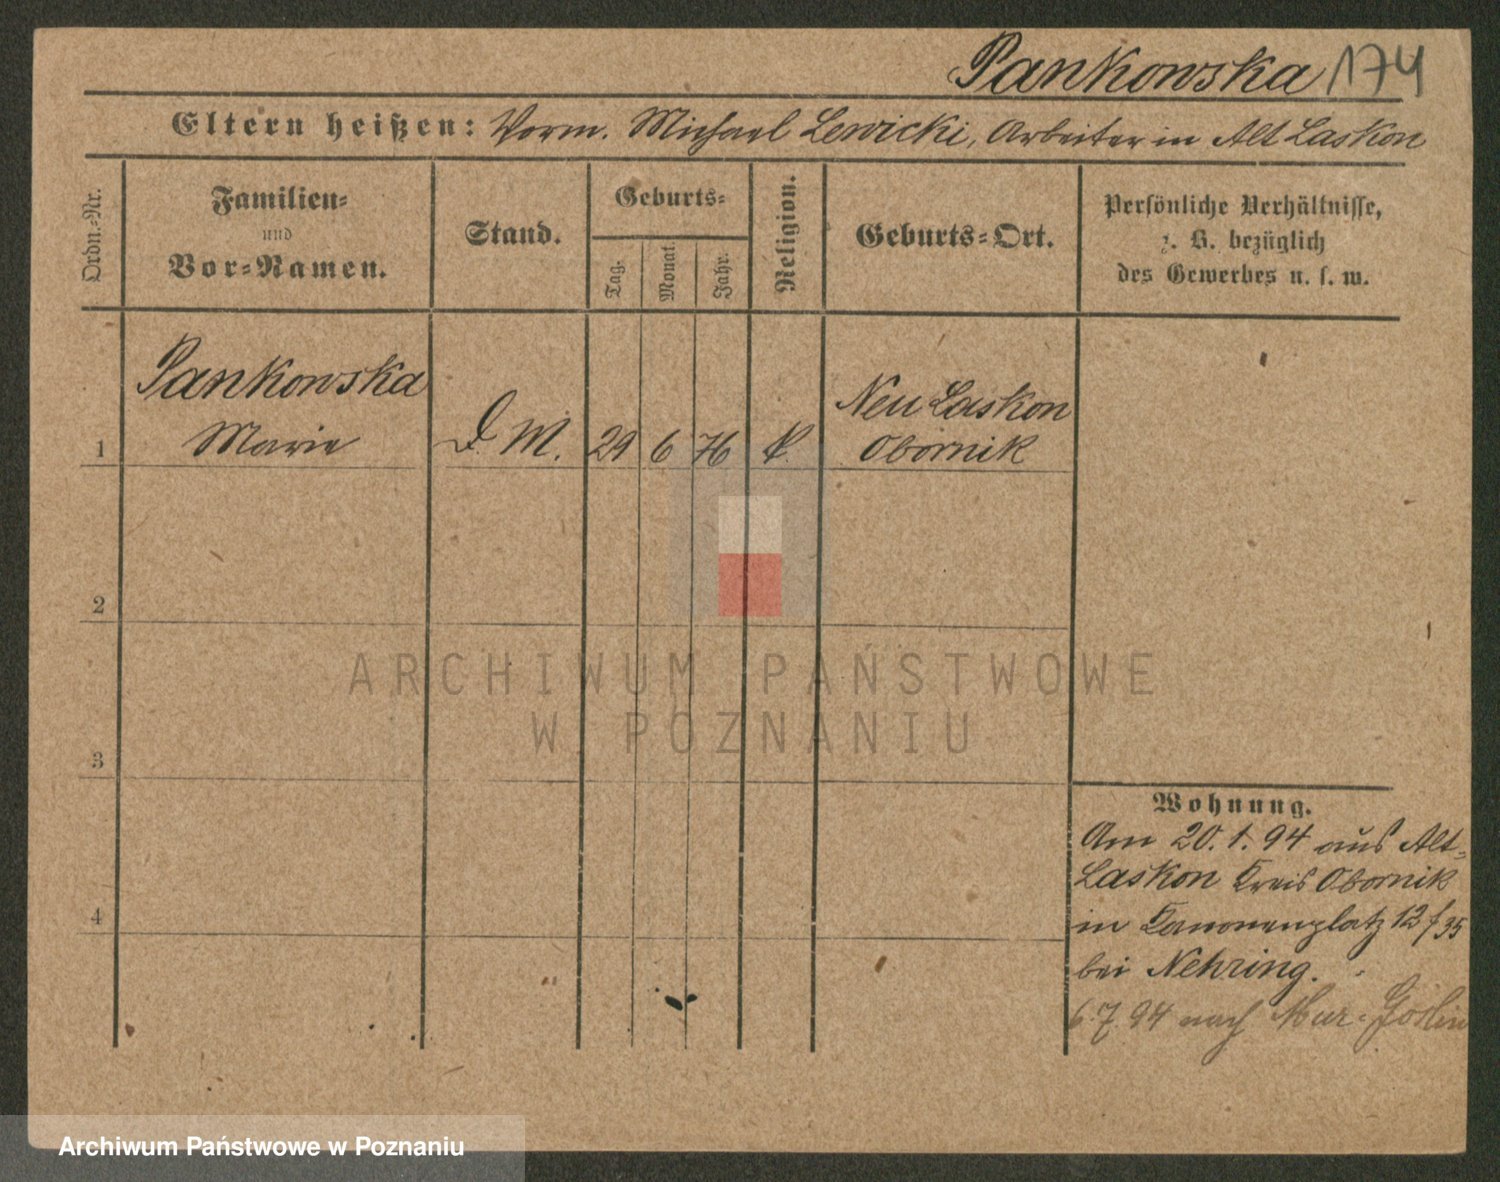 Pankowska 174
Eltern heißen: Vorm. Michael Lewicki, Arbeiter in Alt Laskon
Ordn.-Nr.
Familien-
und
Vor-Namen.
Stand.
Geburts-
Tag.
Monat.
Jahr.
Religion.
Geburts-Ort.
Persönliche Verhältnisse,
z. B. bezüglich
des Gewerbes u. s. w.
Pankowska
Marie
1
D. M.
29
6
76
k.
Neu Laskon
Obornik
2
3
4
Wohnung.
Am 20.1.94 aus Alt-
Laskon Kreis Obornik
in Kanonenplatz 12 f 35
bei Nehring.
6.7.94 nach Mur-Goslin
ARCHIWUM PAŃSTWOWE
W POZNANIU
Archiwum Państwowe w Poznaniu